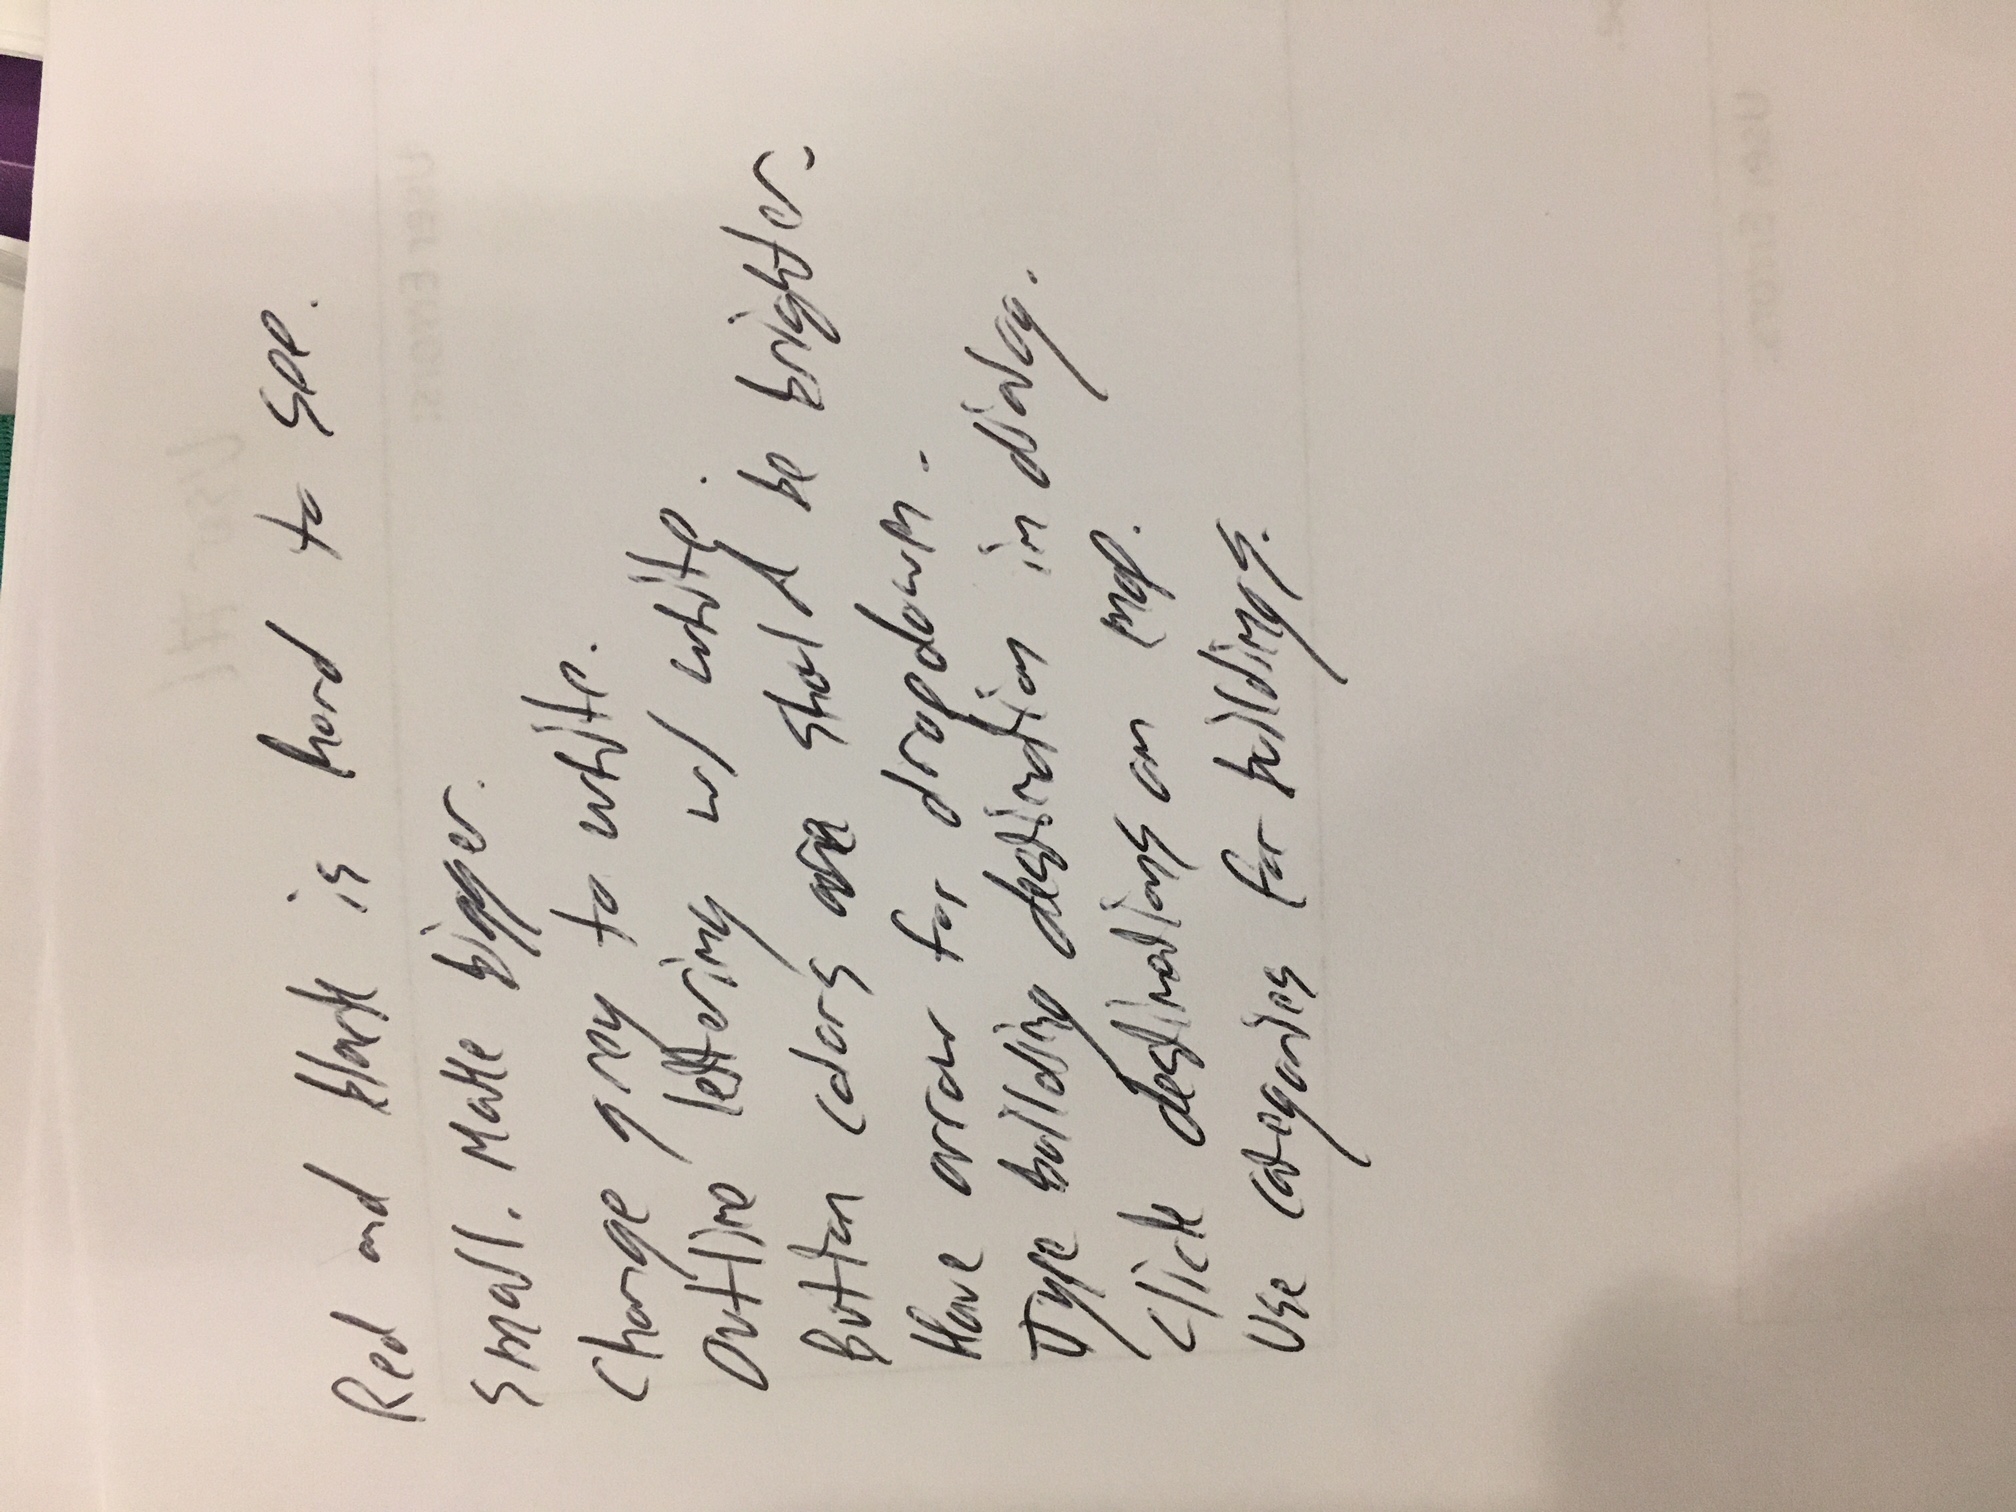 Red and black is hard to see.
Small. Make bigger.
Change grey to white.
Outline lettering w/ white.
Button colors are should be brighter.
Have arrow for dropdown.
Type building destination in dialog.
Click destinations on map.
Use categories for buildings.
User Errors:
User Errors: